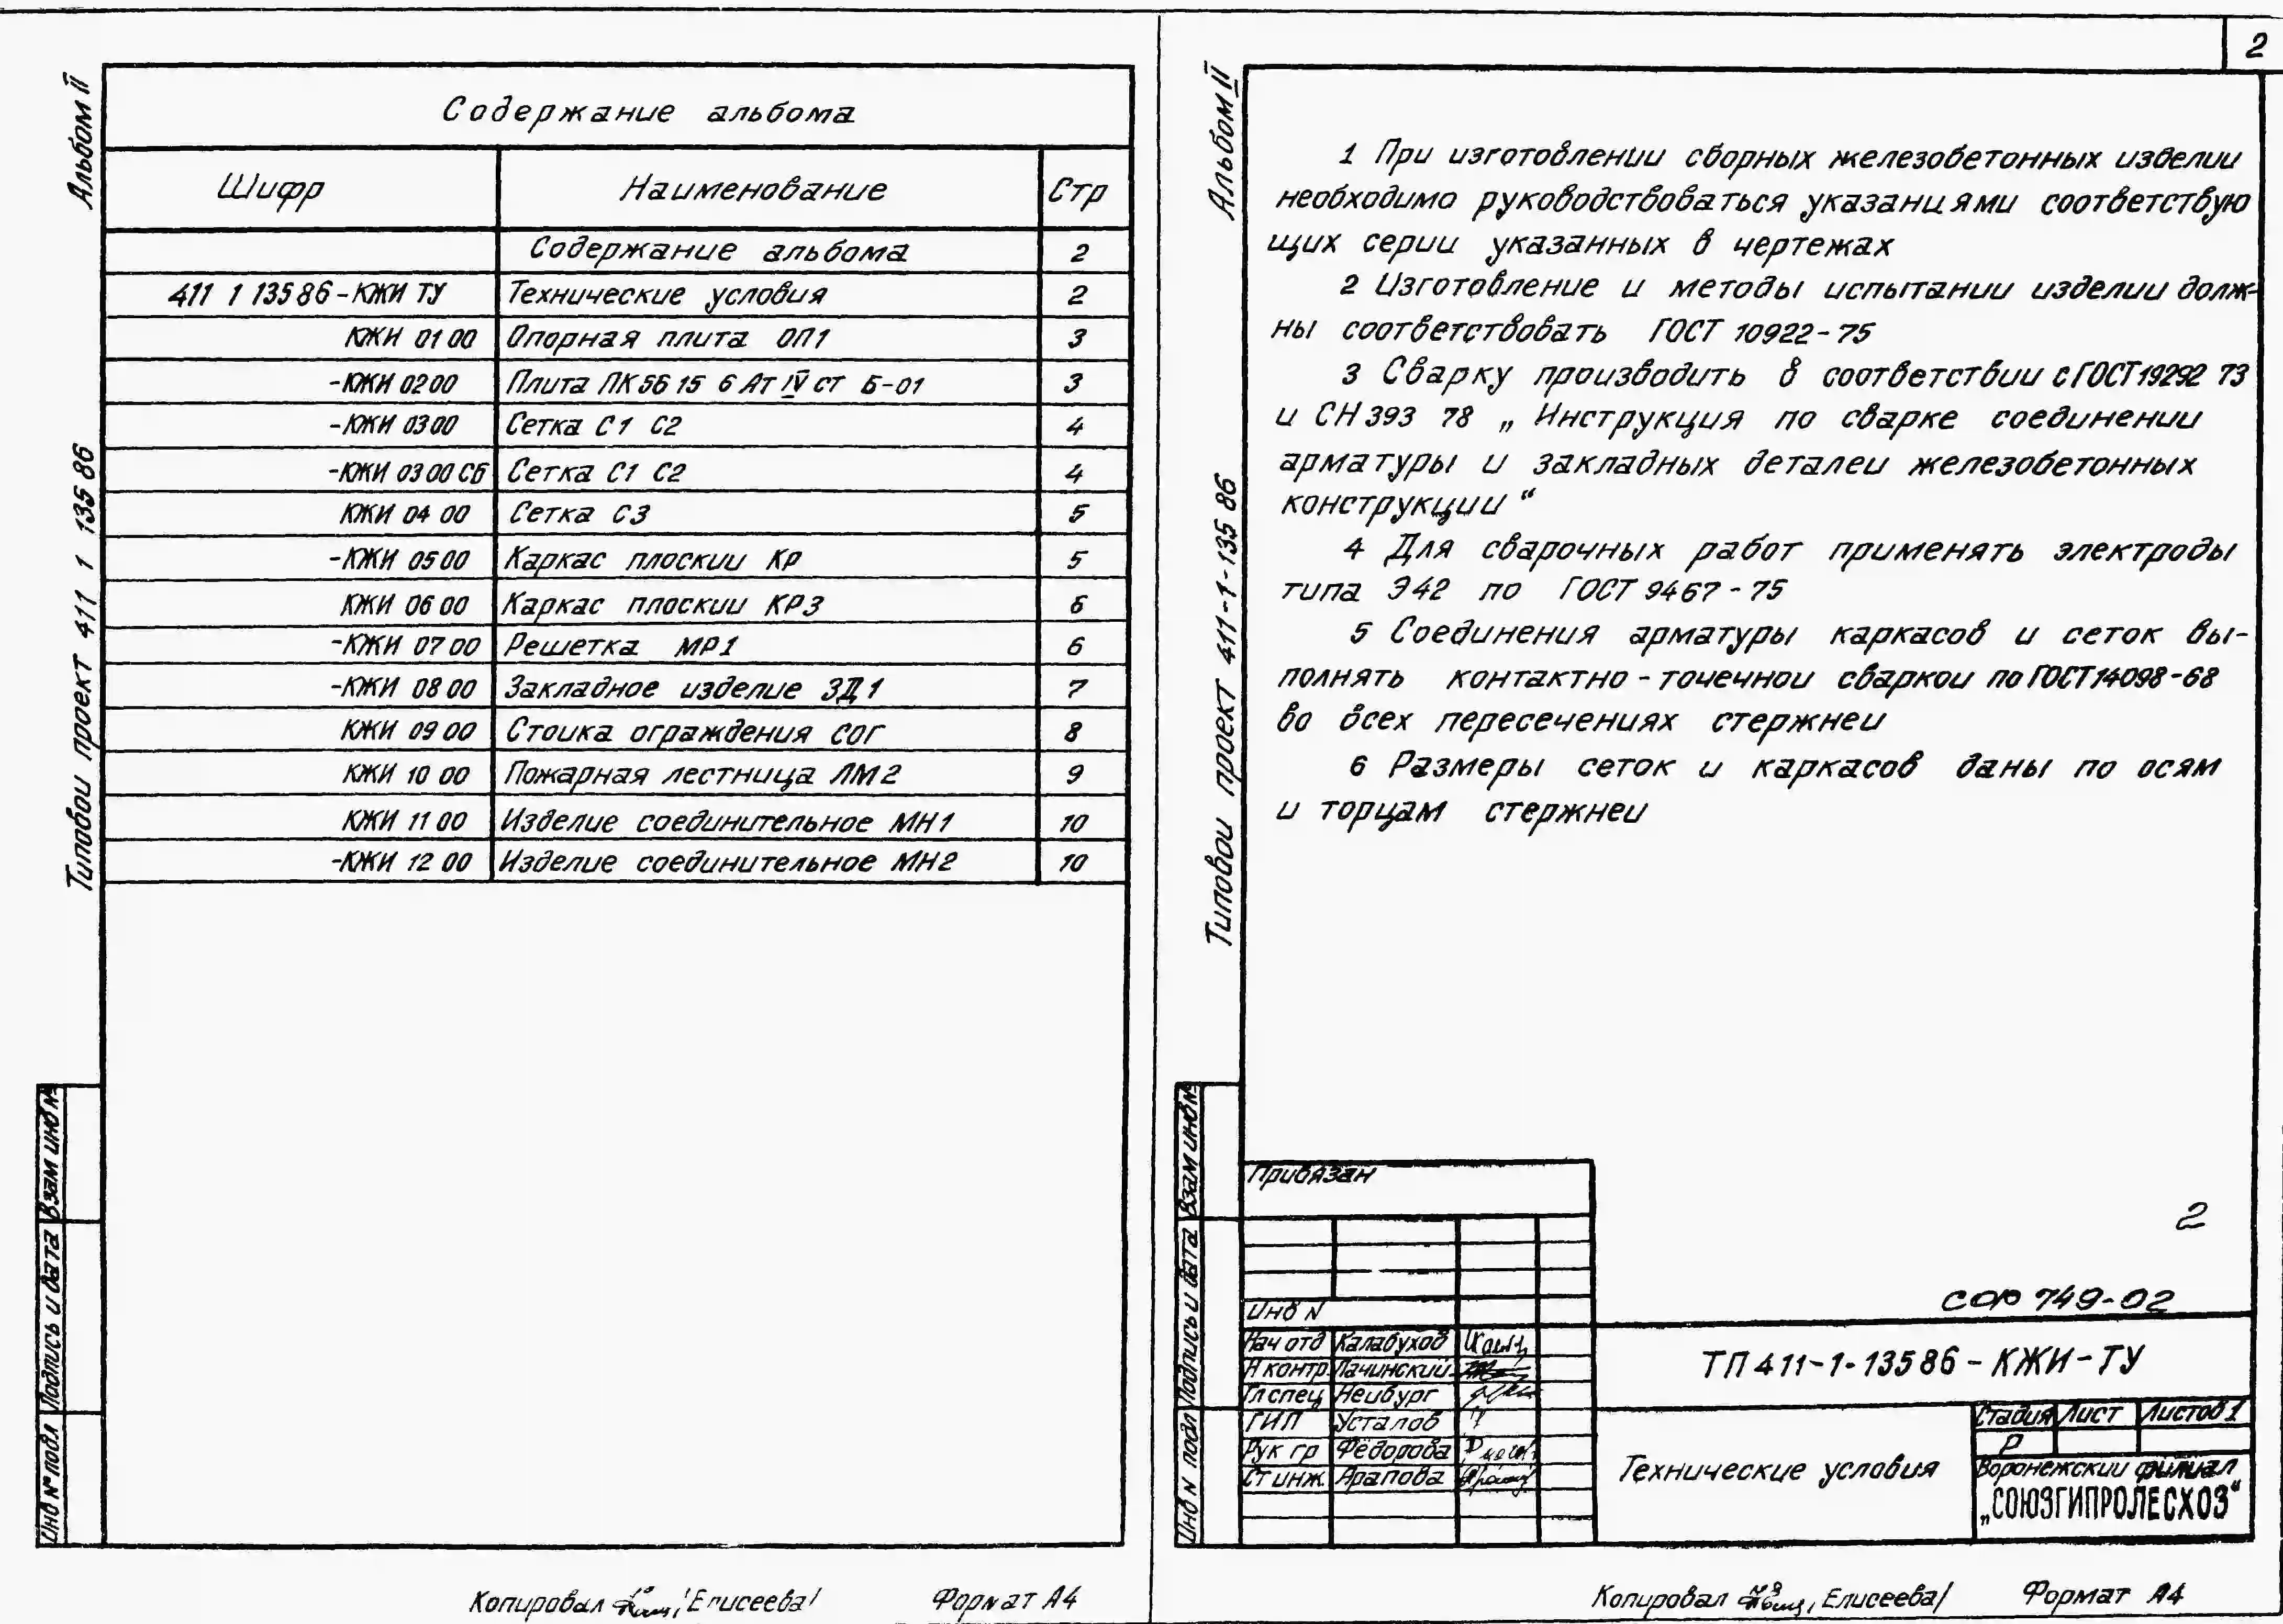 Альбом II
Содержание альбома
Шифр Наименование Стр
Содержание альбома 2
411 1 135 86 - КЖИ ТУ Технические условия 2
КЖИ 01 00 Опорная плита ОП1 3
-КЖИ 02 00 Плита ПК 56 15 6 Ат IV ст Б-01 3
-КЖИ 03 00 Сетка С1 С2 4
-КЖИ 03 00 СБ Сетка С1 С2 4
КЖИ 04 00 Сетка С3 5
-КЖИ 05 00 Каркас плоскии КР 5
КЖИ 06 00 Каркас плоскии КР3 6
-КЖИ 07 00 Решетка МР1 6
-КЖИ 08 00 Закладное изделие ЗД1 7
КЖИ 09 00 Стоика ограждения СОГ 8
КЖИ 10 00 Пожарная лестница ЛМ2 9
КЖИ 11 00 Изделие соединительное МН1 10
-КЖИ 12 00 Изделие соединительное МН2 10
Типовои проект 411 1 135 86
Взам инв №
Подпись и дата
Инв № подл
Копировал Елисеева/ Формат А4
2
Альбом II
1 При изготовлении сборных железобетонных изделии
необходимо руководствоваться указаниями соответствую
щих серии указанных в чертежах
2 Изготовление и методы испытании изделии долж-
ны соответствовать ГОСТ 10922-75
3 Сварку производить в соответствии с ГОСТ 19292 73
и СН 393 78 „ Инструкция по сварке соединении
арматуры и закладных деталеи железобетонных
конструкции “
4 Для сварочных работ применять электроды
типа Э42 по ГОСТ 9467-75
5 Соединения арматуры каркасов и сеток вы-
полнять контактно-точечнои сваркои по ГОСТ 14098-68
во всех пересечениях стержнеи
6 Размеры сеток и каркасов даны по осям
и торцам стержнеи
Типовои проект 411-1-135 86
Взам инв №
Подпись и дата
Инв N подл
Привязан
Инв N
2
СФ 749-02
Нач отд Калабухов
Н контр Лачинский
Гл спец Неибург
ГИП Усталов
Рук гр Фёдорова
Ст инж Арапова
ТП 411-1-135 86 - КЖИ-ТУ
Технические условия
Стадия Лист Листов 1
Р
Воронежскии филиал
„СОЮЗГИПРОЛЕСХОЗ“
Копировал Елисеева/ Формат А4